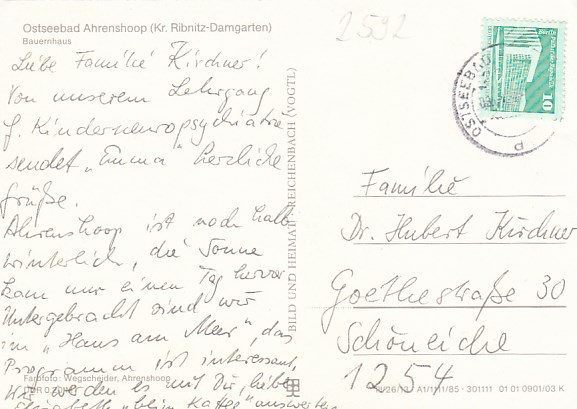 2592
Ostseebad Ahrenshoop (Kr. Ribnitz-Damgarten)
Bauernhaus
Liebe Familie Kirchner!
Von unserem Lehrgang
f. Kinderneuropsychiatrie
sendet „Emma" herzliche
Grüße.
Ahrenshoop ist noch halb
winterlich, die Sonne
kam nur einen Tag hervor
Untergebracht sind wir
im „Haus am Meer", das
Programm ist interessant,
Wir werden es mit Dir, liebe
Elisabeth „beim Kaffee" auswerten
Farbfoto: Wegscheider, Ahrenshoop
BILD UND HEIMAT REICHENBACH (VOGTL)
OSTSEEBAD
10
Familie
Dr. Hubert Kirchner
Goethestraße 30
Schöneiche
1254
A1/1111/85 · 301111 01 01 0901/03 K